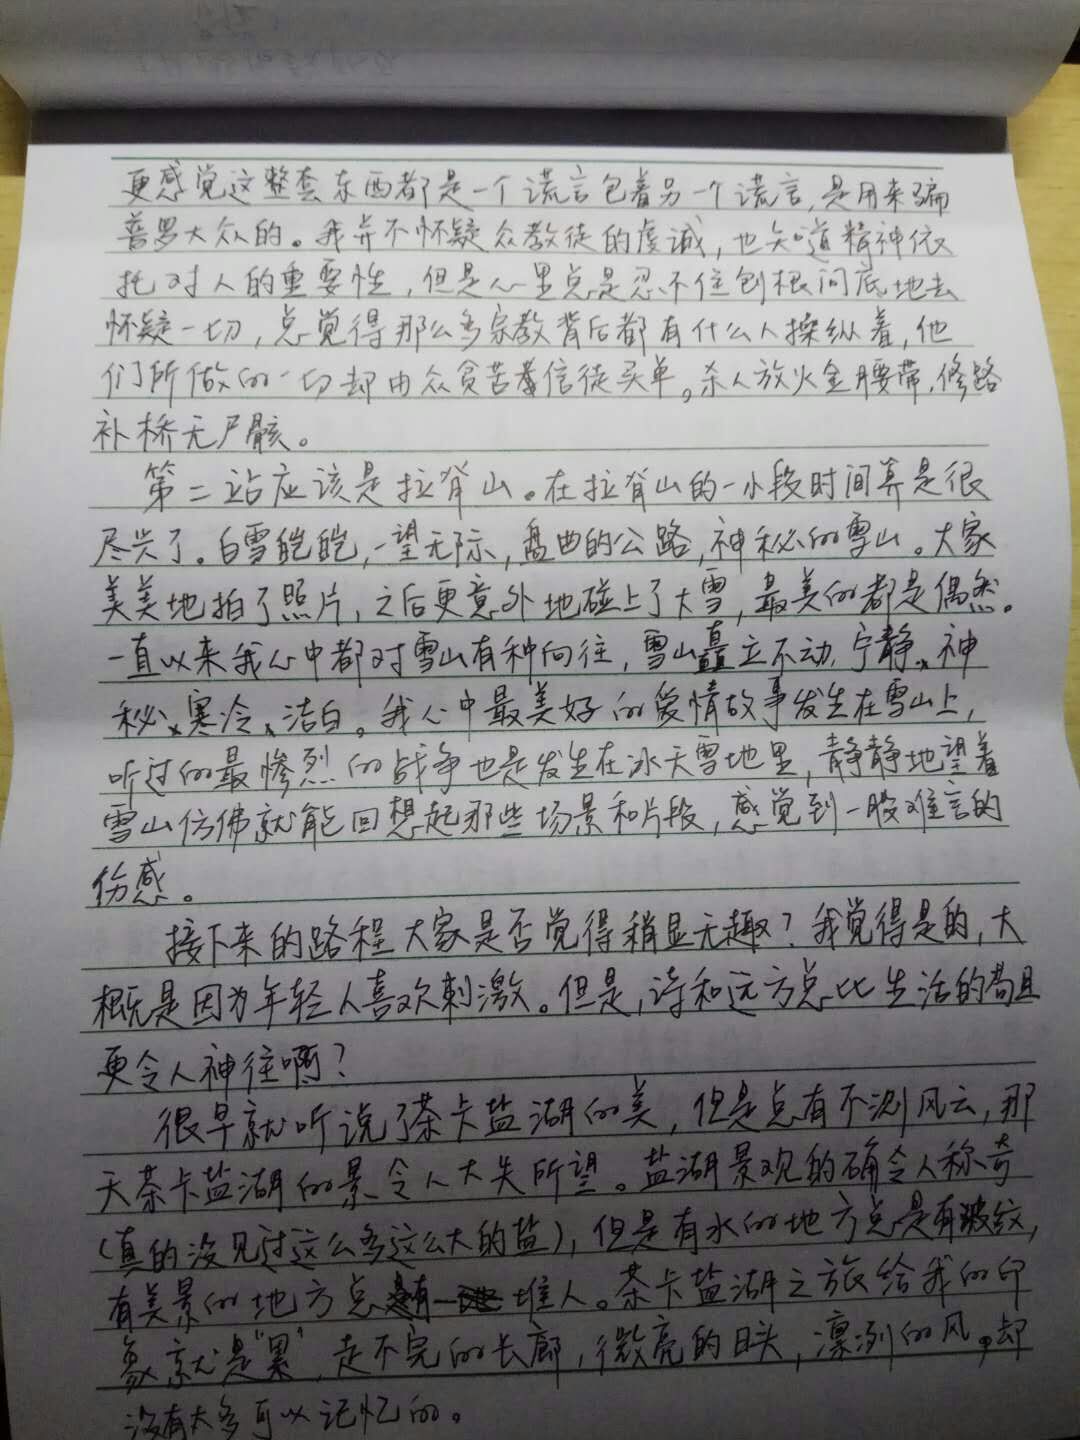 更感觉这整套东西都是一个谎言包着另一个谎言,是用来骗
普罗大众的。我并不怀疑众教徒的虔诚,也知道精神依
托对人的重要性,但是心里总是忍不住刨根问底地去
怀疑一切,总觉得那么多宗教背后都有什么人操纵着,他
们所做的一切却由众贫苦信徒买单。杀人放火金腰带,修路
补桥无尸骸。
第二站应该是拉脊山。在拉脊山的一小段时间算是很
尽兴了。白雪皑皑,一望无际,盘曲的公路,神秘的雪山。大家
美美地拍了照片,之后更意外地碰上了大雪,最美的都是偶然。
一直以来我心中都对雪山有种向往,雪山矗立不动,宁静、神
秘、寒冷、洁白。我心中最美好的爱情故事发生在雪山上,
听过的最惨烈的战争也是发生在冰天雪地里,静静地望着
雪山仿佛就能回想起那些场景和片段,感觉到一股难言的
伤感。
接下来的路程大家是否觉得稍显无趣?我觉得是的,大
概是因为年轻人喜欢刺激。但是,诗和远方总比生活的苟且
更令人神往啊?
很早就听说了茶卡盐湖的美,但是总有不测风云,那
天茶卡盐湖的景令人大失所望。盐湖景观的确令人称奇
(真的没见过这么多这么大的盐),但是有水的地方总是有波纹,
有美景的地方总有一堆人。茶卡盐湖之旅给我的印
象就是“累”,走不完的长廊,微亮的日头,凛冽的风,却
没有太多可以记忆的。